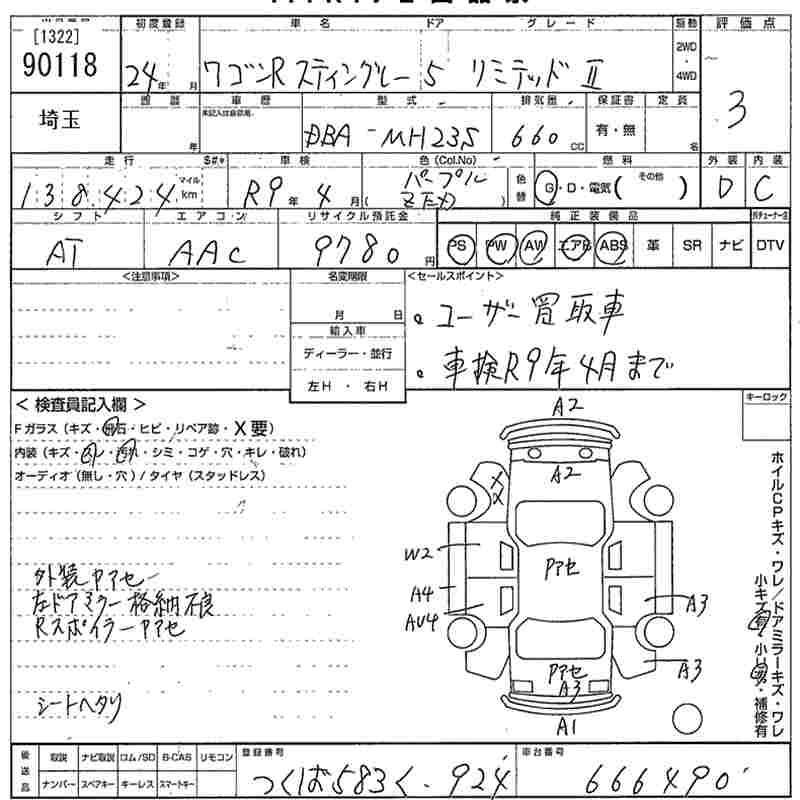 [1322]
90118
初度登録 車名 ドア グレード 駆動 評価点
24年 月 ワゴンR スティングレー 5 リミテッドⅡ 2WD・4WD 3
埼玉
車歴 型式 排気量 保証書 定員
未記入は自家用。
年 DBA-MH23S 660cc 有・無 名
走行 車検 色(Col.No) 燃料 外装 内装
138,424 マイル km R9年 4月 パープル 色替 G・D・電気( その他 ) D C
シフト エアコン リサイクル預託金 純正装備品
AT AAC 9780円 PS PW AW エアB ABS 革 SR ナビ DTV
<注意事項> 名変期限 <セールスポイント>
月 日
。ユーザー買取車
輸入車
ディーラー・並行
。車検R9年4月まで
左H・右H
<検査員記入欄>
Fガラス(キズ・飛石・ヒビ・リペア跡・X要)
内装(キズ・スレ・汚れ・シミ・コゲ・穴・キレ・破れ)
オーディオ(無し・穴)/タイヤ(スタッドレス)
外装ヤアセー
左ドアミラー格納不良
Rスポイラーヤアセ
シートヘタリ
キーロック
A2
A2
XX
W2
ヤアセ
A4
AU4
A3
A3
ヤアセ
A3
A1
ホイルCPキズ・ワレ/ドアミラーキズ・ワレ
小キズ有・小凹有・補修有
後送品 取説 ナビ取説 ロム/SD B-CAS リモコン
ナンバー スペアキー キーレス スマートキー
登録番号 つくば583く・924
車台番号 666490